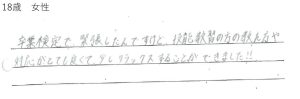 18歳 女性
卒業検定で、緊張したんですけど、技能教習の方の教え方や
対応がとても良くて、少しリラックスすることができました!!